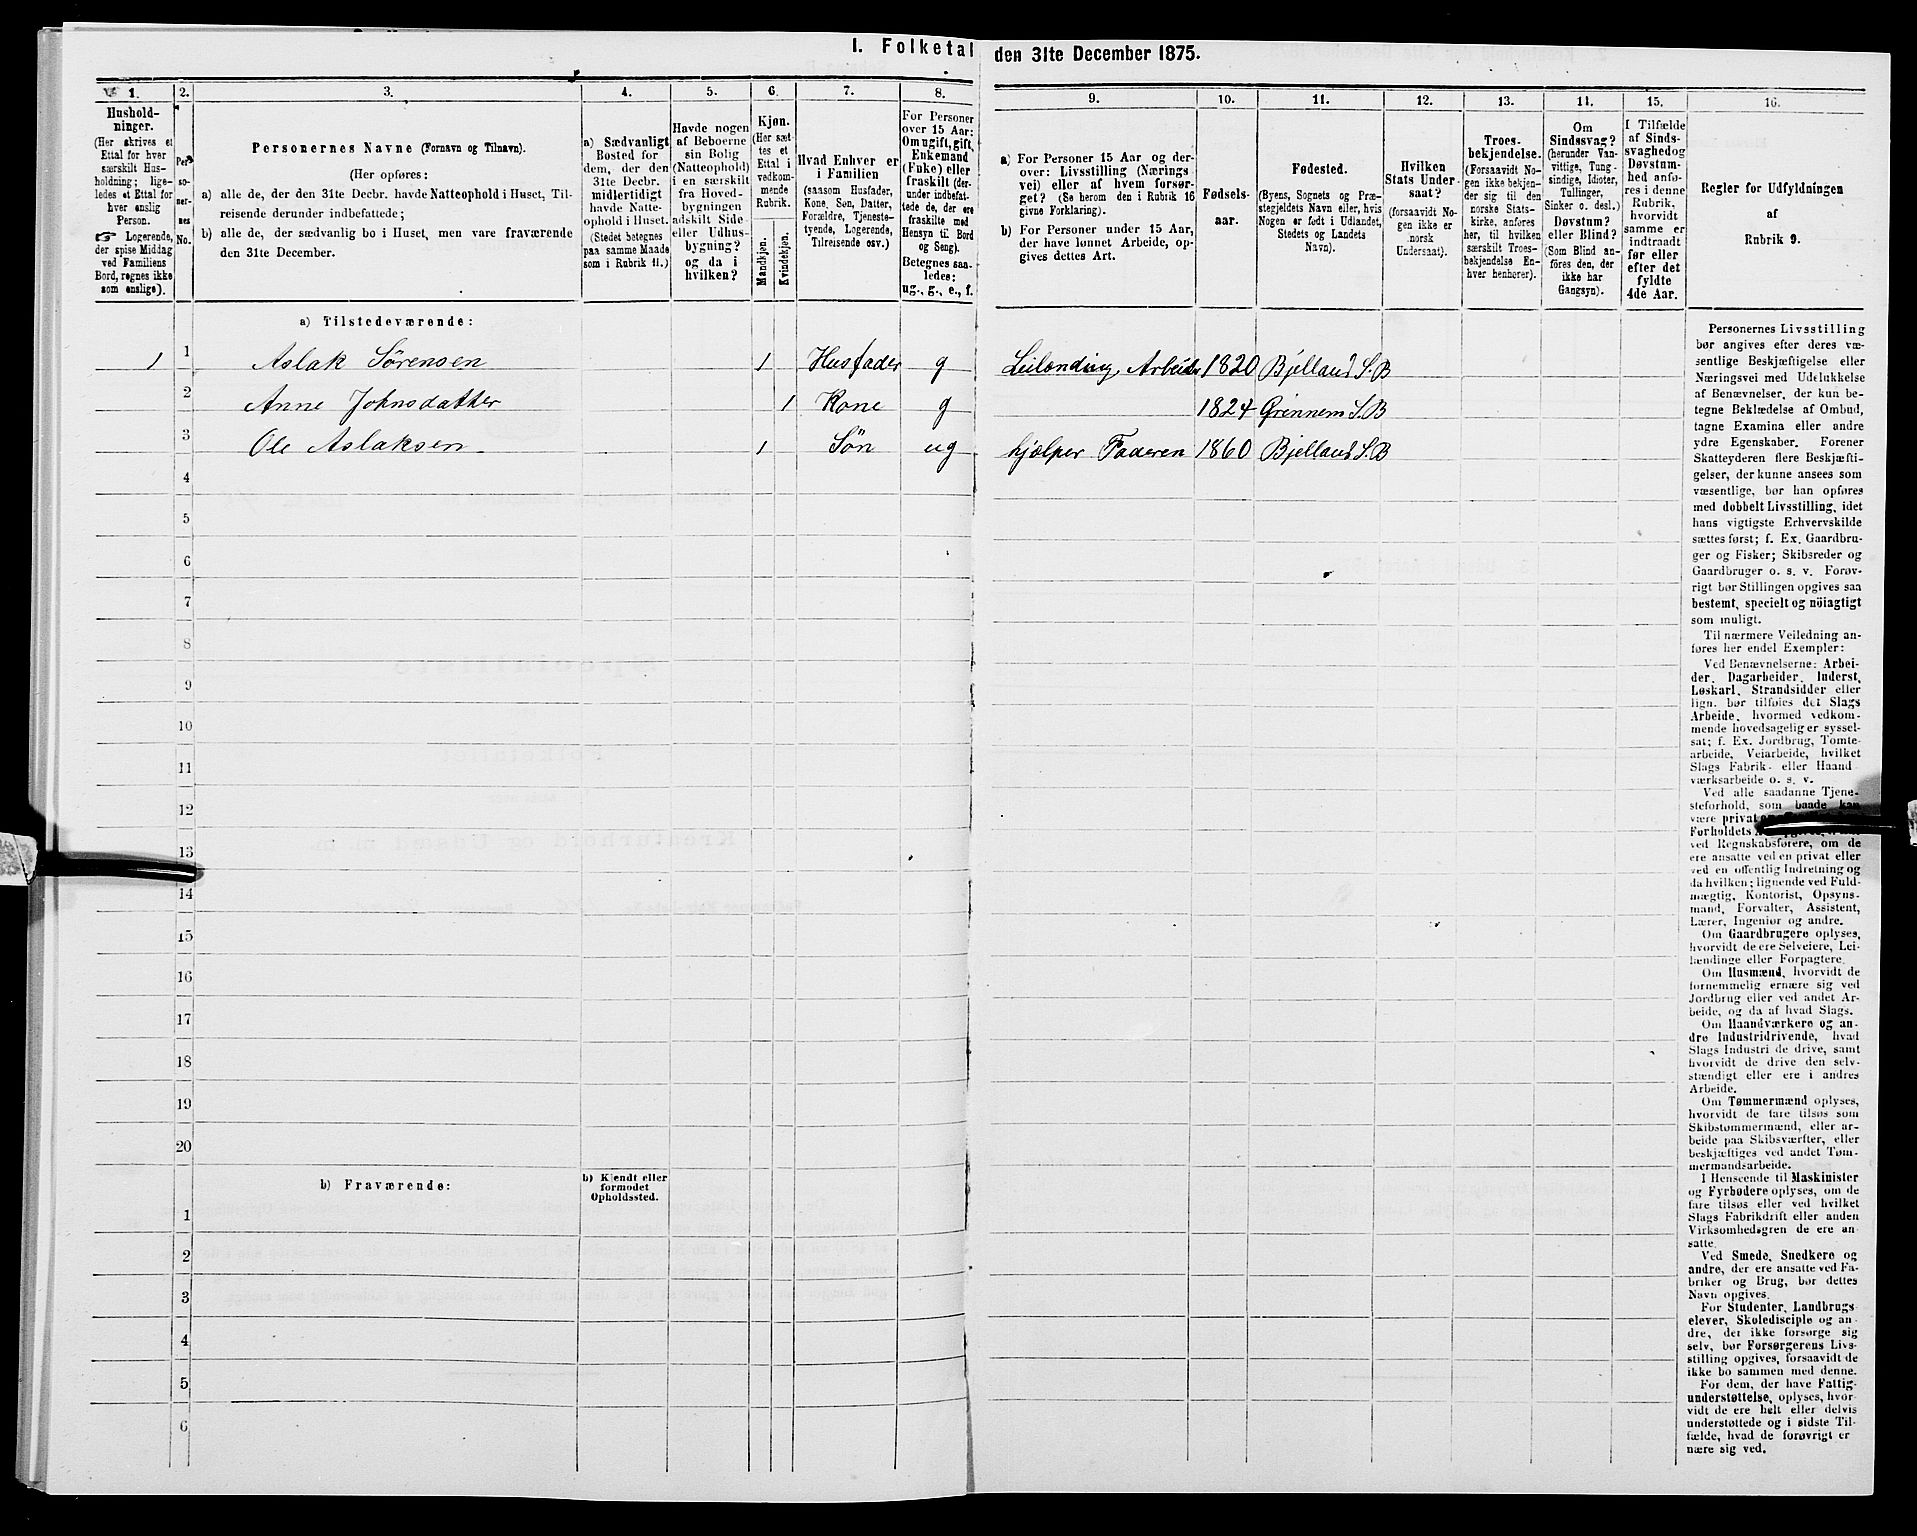 I. Folketal den 31te December 1875.
1.
Hushold-
ninger.
(Her skrives et
Ettal for hver
særskilt Hus-
holdning; lige-
ledes et Ettal for
hver enslig
Person.
☞ Logerende,
der spise Middag
ved Familiens
Bord, regnes ikke
som enslige).
2.
Per-
so-
ner-
nes
No.
3.
Personernes Navne (Fornavn og Tilnavn).
(Her opføres:
a) alle de, der den 31te Decbr. havde Natteophold i Huset, Til-
reisende derunder indbefattede;
b) alle de, der sædvanlig bo i Huset, men vare fraværende
den 31te December.
4.
a) Sædvanligt
Bosted for
dem, der den
31te Decbr.
midlertidigt
havde Natte-
ophold i Huset.
(Stedet betegnes
paa samme Maade
som i Rubrik 11.)
5.
Havde nogen
af Beboerne
sin Bolig
(Natteophold)
i en særskilt
fra Hoved-
bygningen
adskilt Side-
eller Udhus-
bygning?
og da i
hvilken?
6.
Kjøn.
(Her sæt-
tes et
Ettal i
vedkom-
mende
Rubrik.
Mandkjøn.
Kvindekjøn.
7.
Hvad Enhver er
i Familien
(saasom Husfader,
Kone, Søn, Datter,
Forældre, Tjeneste-
tyende, Logerende,
Tilreisende osv.)
8.
For Personer
over 15 Aar:
Om ugift, gift,
Enkemand
(Enke) eller
fraskilt (der-
under indbefat-
tede de, der ere
fraskilte med
Hensyn til Bord
og Seng).
Betegnes saa-
ledes:
ug., g., e., f.
9.
a) For Personer 15 Aar og der-
over: Livsstilling (Nærings-
vei) eller af hvem forsør-
get? (Se herom den i Rubrik 16
givne Forklaring).
b) For Personer under 15 Aar,
der have lønnet Arbeide, op-
gives dettes Art.
10.
Fødsels-
aar.
11.
Fødested.
(Byens, Sognets og Præ-
stegjeldets Navn eller, hvis
Nogen er født i Udlandet,
Stedets og Landets
Navn).
12.
Hvilken
Stats Under-
saat?
(forsaavidt No-
gen ikke er
norsk
Undersaat).
13.
Troes-
bekjendelse.
(Forsaavidt No-
gen ikke bekjen-
der sig til den
norske Stats-
kirke, anføres
her, til hvilken
særskilt Troes-
bekjendelse En-
hver henhører).
14.
Om
Sindssvag?
(herunder Van-
vittige, Tung-
sindige, Idioter,
Tullinger,
Sinker o. desl.)
Døvstum?
eller Blind?
(Som Blind an-
føres den, der
ikke har
Gangsyn).
15.
I Tilfælde
af Sinds-
svaghed og
Døvstum-
hed anfø-
res i denne
Rubrik,
hvorvidt
samme er
indtraadt
før eller
efter det
fyldte
4de Aar.
16.
Regler for Udfyldningen
af
Rubrik 9.
a) Tilstedeværende:
1 1 Aslak Sørensen 1 Husfader g Leilænding, Arbeider 1820 Bjelland S.B
2 Anne Johnsdatter 1 Kone g 1824 Grönnem S.B
3 Ole Aslaksen 1 Søn ug hjælper Faderen 1860 Bjelland S.B
4
5
6
7
8
9
10
11
12
13
14
15
16
17
18
19
20
b) Fraværende:
b) Kjendt eller
formodet
Opholdssted.
1
2
3
4
5
6
Personernes Livsstilling
bør angives efter deres væ-
sentlige Beskjæftigelse eller
Næringsvei med Udelukkelse
af Benævnelser, der kun be-
tegne Beklædelse af Ombud,
tagne Examina eller andre
ydre Egenskaber. Forener
Skatteyderen flere Beskjæfti-
gelser, der kunne ansees som
væsentlige, bør han opføres
med dobbelt Livsstilling, idet
hans vigtigste Erhvervskilde
sættes først; f. Ex. Gaardbru-
ger og Fisker; Skibsreder og
Gaardbruger o. s. v. Forøv-
rigt bør Stillingen opgives saa
bestemt, specielt og nöiagtigt
som muligt.
Til nærmere Veiledning an-
føres her endel Exempler:
Ved Benævnelserne: Arbei-
der, Dagarbeider, Inderst,
Løskarl, Strandsidder eller
lign. bør tilføies det Slags
Arbeide, hvormed vedkom-
mende hovedsagelig er syssel-
sat; f. Ex. Jordbrug, Tomte-
arbeide, Veiarbeide, hvilket
Slags Fabrik- eller Haand-
værksarbeide o. s. v.
Ved alle saadanne Tjene-
steforhold, som baade kan
være privat
Forholdets
ved Regnskabsførere, om de
ere ansatte ved en privat eller
ved en offentlig Indretning og
da hvilken; lignende ved Fuld-
mægtig, Kontorist, Opsyns-
mand, Forvalter, Assistent,
Lærer, Ingeniør og andre.
Om Gaardbrugere oplyses,
hvorvidt de ere Selveiere, Lei-
lændinge eller Forpagtere.
Om Husmænd, hvorvidt de
fornemmelig ernære sig ved
Jordbrug eller ved andet Ar-
beide, og da af hvad Slags.
Om Haandværkere og an-
dre Industridrivende, hvad
Slags Industri de drive, samt
hvorvidt de drive den selv-
stændigt eller ere i andres
Arbeide.
Om Tømmermænd oplyses,
hvorvidt de fare tilsøs som
Skibstømmermænd, eller ar-
beide paa Skibsværfter, eller
beskjæftiges ved andet Tøm-
mermandsarbeide.
I Henseende til Maskinister
og Fyrbødere oplyses, om de
fare tilsøs eller ved hvilket
Slags Fabrikdrift eller anden
Virksomhedsgren de ere an-
satte.
Ved Smede, Snedkere og
andre, der ere ansatte ved Fa-
briker og Brug, bør dettes
Navn opgives.
For Studenter, Landbrugs-
elever, Skoledisciple og an-
dre, der ikke forsørge sig
selv, bør Forsørgerens Livs-
stilling opgives, forsaavidt de
ikke bo sammen med denne.
For dem, der have Fattig-
understøttelse, oplyses, hvor-
vidt de ere helt eller delvis
understøttede og i sidste Til-
fælde, hvad de forøvrigt er
nære sig ved.